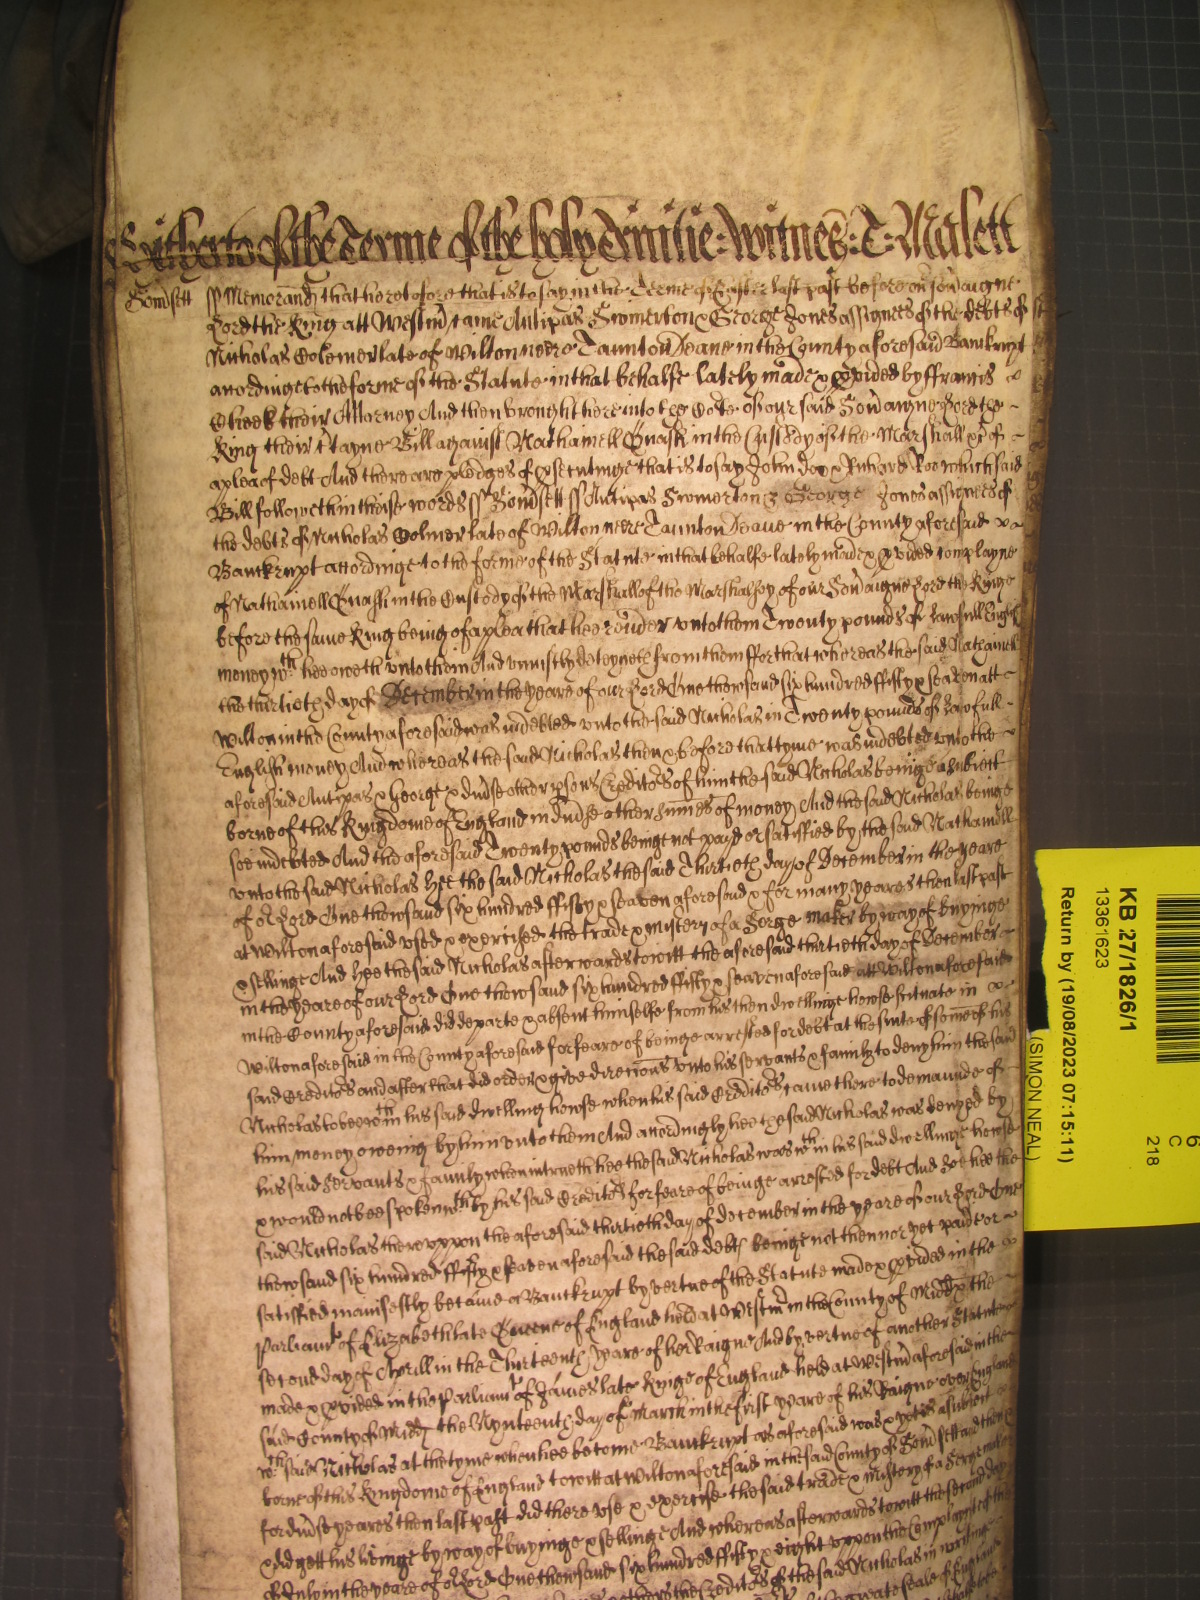 Hitherto of the Terme of the holy Trinitie: Witnes: T: Malett
Som̄sett ss Memorand that heretofore that is to say in the Terme of Easter last past before our Sov̄aigne
Lord the King att Westm̄ came Antipas Swinerton & George Jones assignees of the debts of
Nicholas Colemer late of Wilton neere Taunton Deane in the County aforesaid Banckrupt
accordinge to the forme of the Statute in that behalfe lately made & p̱vided by ffrancis
Cheek their Attorney And then brought here into the Court of our said Sov̄aigne Lord the
King their c̄tayne Bill against Nathaniell Quash in the Custody of the Marshall &c of
a plea of debt And there are pledges of p̱secutinge that is to say John Doo & Richard Roo which said
Bill followeth in theise words ss Som̄sett ss Antipas Swinerton & George Jones assignees of
the debts of Nicholas Colmer late of Wilton neere Taunton Deane in the County aforesaid
Banckrupt accordinge to the forme of the Statute in that behalfe lately made & p̱vided complayne
of Nathaniell Quash in the Custody of the Marshall of the Marshalsey of our Sov̄aigne Lord the Kinge
before the same King being of a plea that hee render unto them Twenty pounds of lawfull English
money wch hee oweth unto them And uniustly deteyneth from them ffor that whereas the said Nathaniell
the thirtieth day of December in the yeare of our Lord One thowsand six hundred ffifty & seaven att
Wilton in the County aforesaid was indebted unto the said Nicholas in Twenty pounds of Lawfull
English money And whereas the said Nicholas then & before that tyme was indebted unto the
aforesaid Antipas & George & div̄se other p̱sons Creditors of him the said Nicholas beinge a subiect
borne of this Kingdome of England in div̄se other sum̄es of money And the said Nicholas beinge
soe indebted And the aforesaid Twenty pounds beinge not payd or satisfied by the said Nathaniell
unto the said Nicholas Hee the said Nicholas the said Thirtieth day of December in the yeare
of or Lord One thowsand six hundred ffifty & seaven aforesaid & for many yeares then last past
at Wilton aforesaid used & exercised the trade & mistery of a Serge maker by way of buyinge
& sellinge And hee the said Nicholas afterwards to witt the aforesaid thirtieth day of December
in the yeare of our Lord One thowsand six hundred ffifty & seaven aforesaid att Wilton aforesaid
in the County aforesaid did departe & absent himselfe from his then dwellinge howse scituate in
Wilton aforesaid in the County aforesaid for feare of beinge arrested for debt at the suite of some of his
said Creditors and after that did order & give direcc̄ons unto his servants & family to deny him the said
Nicholas to bee wthin his said dwelling howse when his said Creditors came there to demaunde of
him money oweing by him unto them And accordingly hee the said Nicholas was denyed by
his said servants & family when in trueth hee the said Nicholas was wthin his said dwellinge howse
& would not bee spoken wth by his said Creditors for feare of beinge arrested for debt And soe hee the
said Nicholas thereuppon the aforesaid thirtieth day of December in the yeare of our Lord One
thowsand six hundred ffifty & seaven aforesaid the said debts beinge not then nor yet paid or
satisfied manifestly became a Banckrupt by vertue of the Statute made & p̱vided in the
Parliamt of Elizabeth late Queene of England held at Westm̄ in the County of Midd̄x the
second day of Aprill in the Thirteenth yeare of her Raigne And by vertue of another Statute
made & p̱vided in the Parliamt of James late Kinge of England held at Westm̄ aforesaid in the
said County of Midd̄ the Nynteenth day of March in the first yeare of his Raigne over England
wch said Nicholas at the tyme when hee become Banckrupt as aforesaid was & yet is a subiect
borne of this Kingdome of England to witt at Wilton aforesaid in the said County of Som̄sett and then
for div̄se yeares then last past did there use & exercise the said trade & mistery of a Serge maker
& did gett his livinge by way of buyinge & sellinge And whereas afterwards to witt the second day
of July in the yeare of or Lord One thowsand six hundred ffifty & eight uppon the Complaynt of the
others the Creditors of the said Nicholas in writinge
great seale of England
KB 27/1826/1
13361623
Return by (19/08/2023 07:15:11)
(SIMON NEAL)
6
C
218